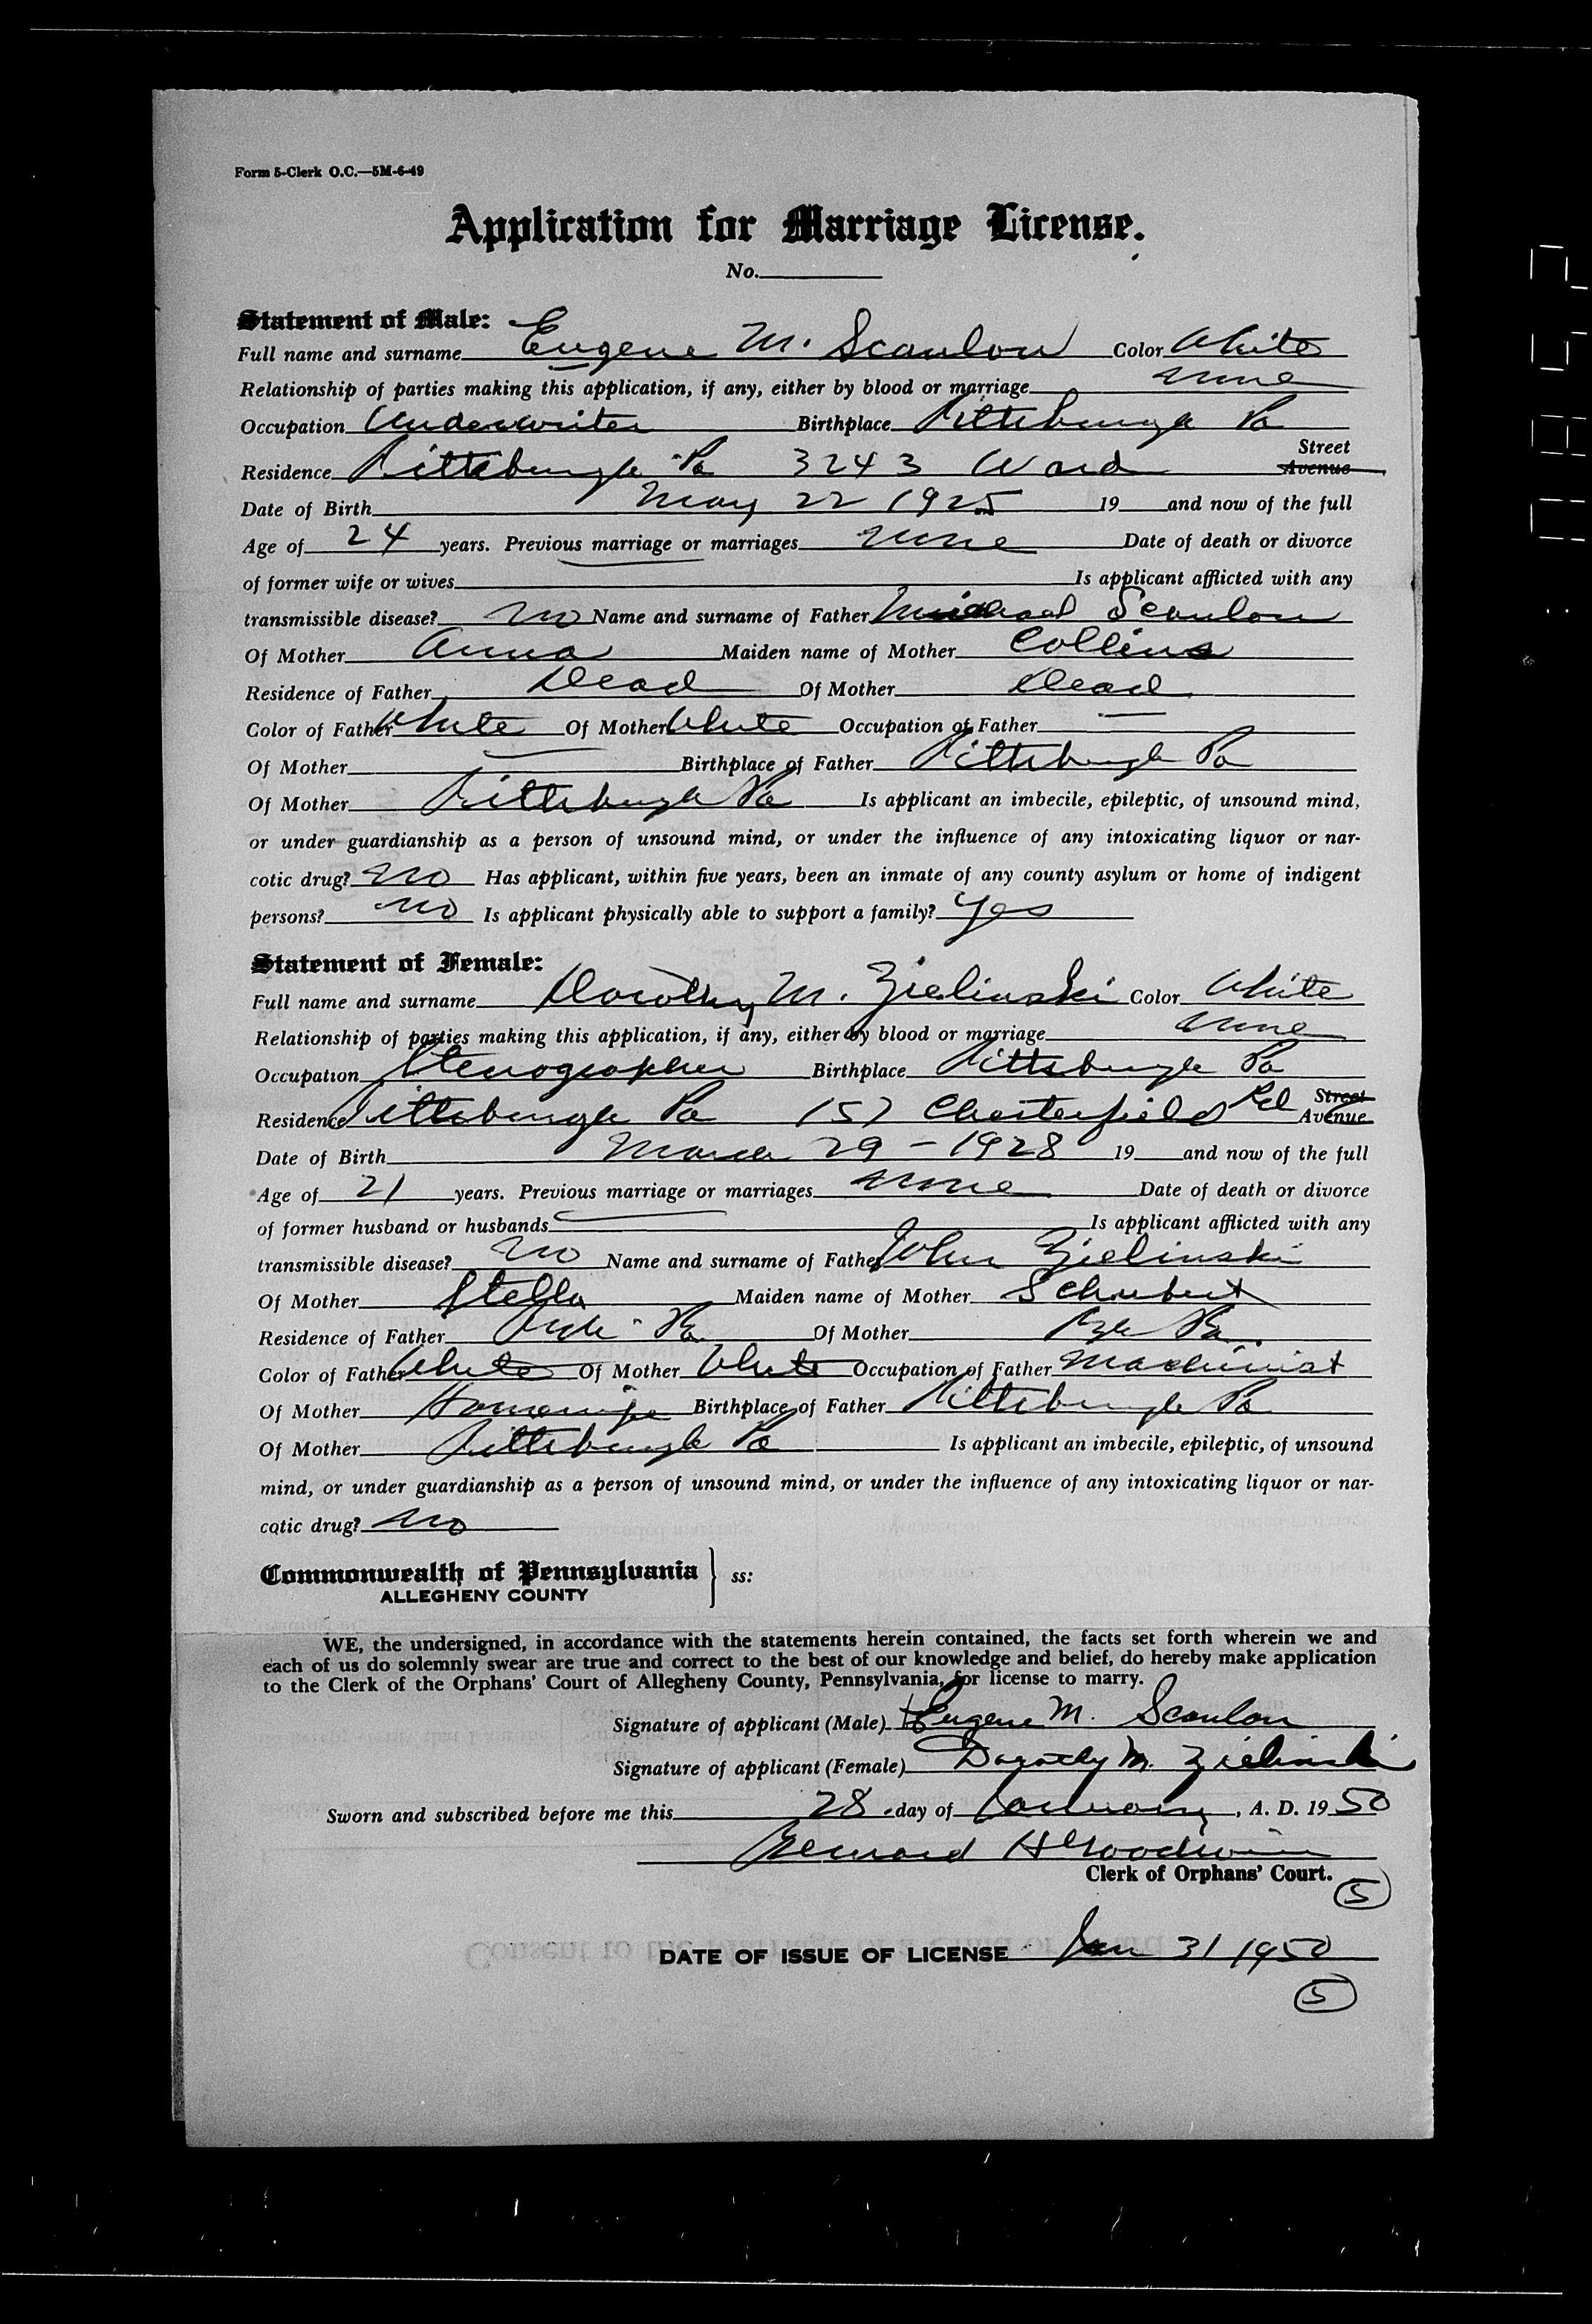 Form 5-Clerk O.C.—5M-6-49
Application for Marriage License.
No.
Statement of Male:
Full name and surname Eugene M. Scanlon Color White
Relationship of parties making this application, if any, either by blood or marriage none
Occupation Underwriter Birthplace Pittsburgh Pa
Street
Residence Pittsburgh Pa 3243 Ward Avenue
Date of Birth May 22 1925 19 and now of the full
Age of 24 years. Previous marriage or marriages none Date of death or divorce
of former wife or wives Is applicant afflicted with any
transmissible disease? no Name and surname of Father Michael Scanlon
Of Mother Anna Maiden name of Mother Collins
Residence of Father Dead Of Mother Dead
Color of Father White Of Mother White Occupation of Father —
Of Mother — Birthplace of Father Pittsburgh Pa
Of Mother Pittsburgh Pa Is applicant an imbecile, epileptic, of unsound mind,
or under guardianship as a person of unsound mind, or under the influence of any intoxicating liquor or nar-
cotic drug? no Has applicant, within five years, been an inmate of any county asylum or home of indigent
persons? no Is applicant physically able to support a family? yes
Statement of Female:
Full name and surname Dorothy M. Zielinski Color White
Relationship of parties making this application, if any, either by blood or marriage none
Occupation Stenographer Birthplace Pittsburgh Pa
Residence Pittsburgh Pa 157 Chesterfield Rd Street
Avenue
Date of Birth March 29 - 1928 19 and now of the full
Age of 21 years. Previous marriage or marriages none Date of death or divorce
of former husband or husbands Is applicant afflicted with any
transmissible disease? no Name and surname of Father John Zielinski
Of Mother Stella Maiden name of Mother Schubert
Residence of Father Pgh Pa Of Mother Pgh Pa.
Color of Father White Of Mother White Occupation of Father Machinist
Of Mother Housewife Birthplace of Father Pittsburgh Pa
Of Mother Pittsburgh Pa Is applicant an imbecile, epileptic, of unsound
mind, or under guardianship as a person of unsound mind, or under the influence of any intoxicating liquor or nar-
cotic drug? no
Commonwealth of Pennsylvania } ss:
ALLEGHENY COUNTY
WE, the undersigned, in accordance with the statements herein contained, the facts set forth wherein we and
each of us do solemnly swear are true and correct to the best of our knowledge and belief, do hereby make application
to the Clerk of the Orphans' Court of Allegheny County, Pennsylvania, for license to marry.
Signature of applicant (Male) Eugene M. Scanlon
Signature of applicant (Female) Dorothy M. Zielinski
Sworn and subscribed before me this 28 day of January, A. D. 1950
Bernard H Goodwin
Clerk of Orphans' Court.
5
DATE OF ISSUE OF LICENSE Jan 31 1950
5